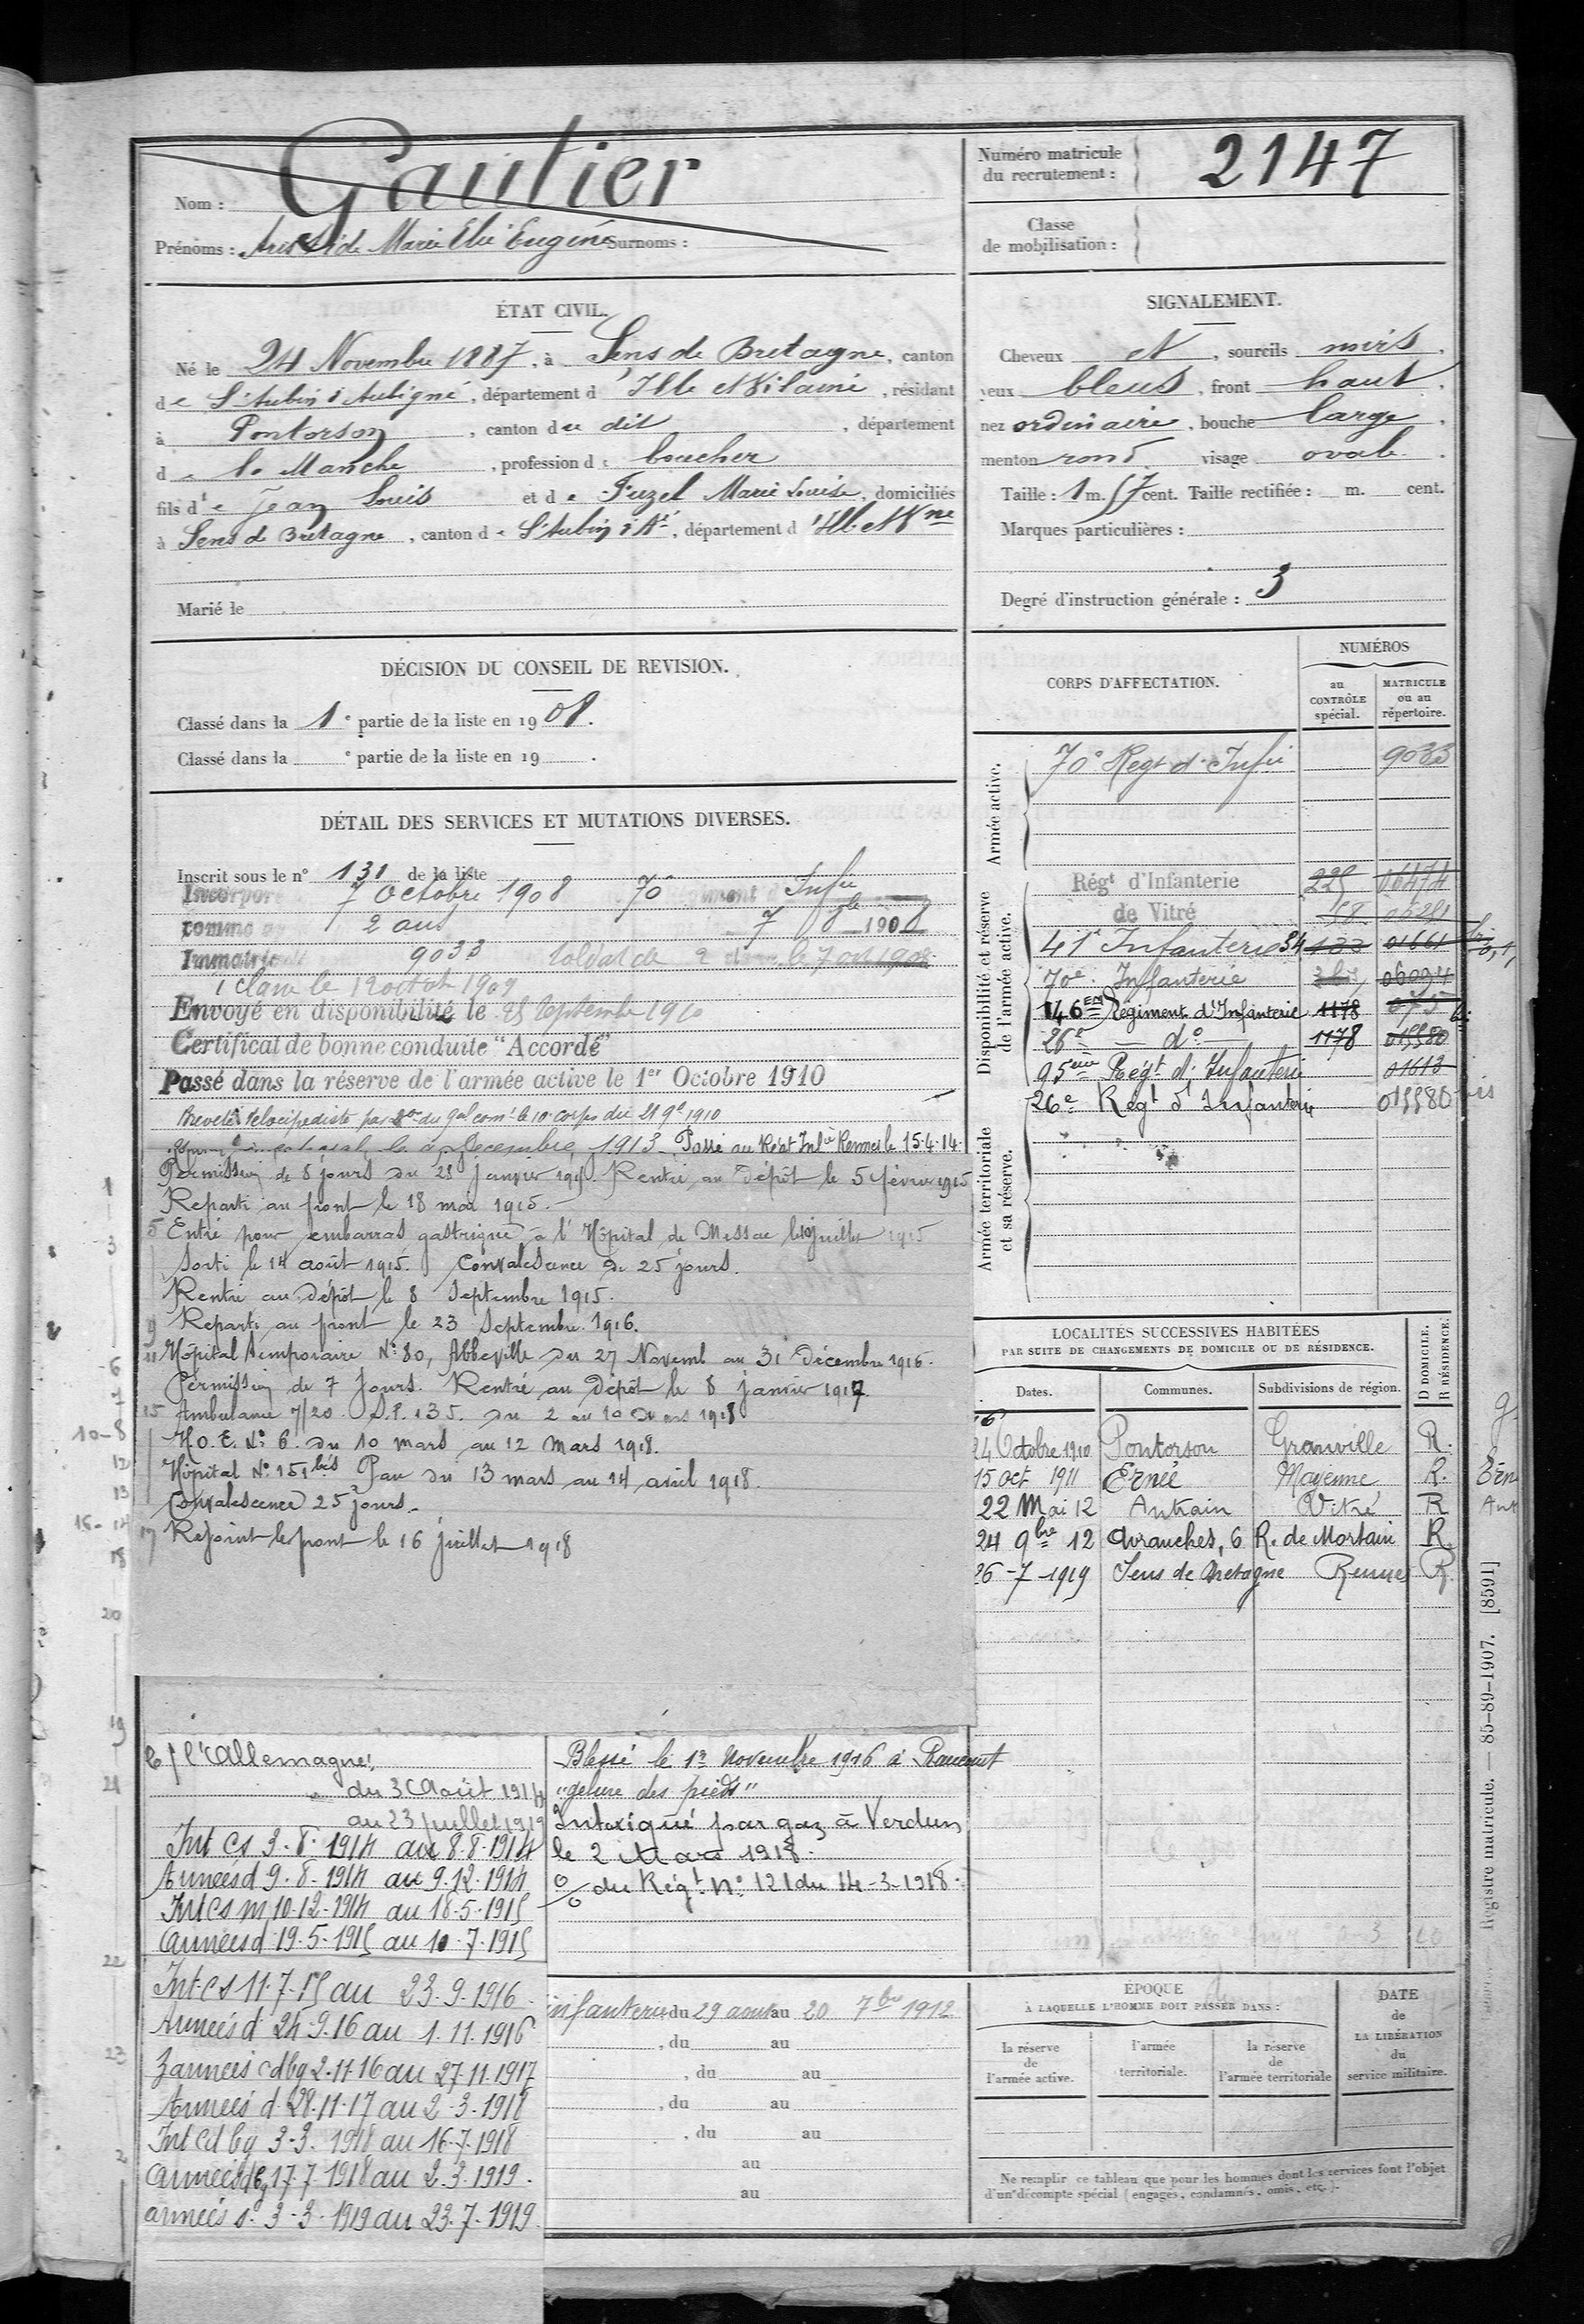 Nom : Gautier
Prénoms : Aristide Marie Elie Eugène Surnoms :
Numéro matricule
du recrutement : 2147
Classe
de mobilisation :
ÉTAT CIVIL.
Né le 24 Novembre 1887, à Sens de Bretagne, canton
de St Aubin d'Aubigné, département d'Ille et Vilaine, résidant
à Pontorson, canton du dit, département
de la Manche, profession de boucher
fils de Jean Louis et de Fuzel Marie Louise, domiciliés
à Sens de Bretagne, canton de St Aubin d'Aé, département d'Ille et Vne
Marié le
SIGNALEMENT.
Cheveux et, sourcils noirs,
yeux bleus, front haut,
nez ordinaire, bouche large,
menton rond visage ovale.
Taille : 1 m. 57 cent. Taille rectifiée : m. cent.
Marques particulières :
Degré d'instruction générale : 3
DÉCISION DU CONSEIL DE REVISION.
Classé dans la 1e partie de la liste en 1908.
Classé dans la e partie de la liste en 19 .
DÉTAIL DES SERVICES ET MUTATIONS DIVERSES.
Inscrit sous le n° 131 de la liste
Incorporé 7 Octobre 1908 70e Infie
comme 2 ans 7 8bre 1908
Immatricule 9033 soldat de 2 classe le 7 oct 1908
1 classe le 12 octob 1909
Envoyé en disponibilité le 25 Septembre 1910
Certificat de bonne conduite "Accordé"
Passé dans la réserve de l'armée active le 1er Octobre 1910
Breveté Vélocipédiste par don du gal comt le 10e corps du 21 9e 1910
le Décembre 1913. Passé au Régt Infie Rennes le 15.4.14.
Permission de 8 jours du 28 Janvier 1915. Rentré au dépôt le 5 février 1915
Reparti au front le 18 mai 1915.
5 Entré pour embarras gastrique à l'Hôpital de Messac le 10 juillet 1915
Sorti le 14 août 1915. Convalescence de 25 jours.
Rentré au dépôt le 8 Septembre 1915.
9 Reparti au front le 23 Septembre 1916.
11 Hôpital temporaire N° 80, Abbeville du 27 Novemb au 31 Décembre 1916.
Permission de 7 Jours. Rentré au Dépôt le 8 janvier 1917.
15 Ambulance 7/20. S.P. 135. du 2 au 10 Mars 1918
H.O.E. N° 6. du 10 mars au 12 Mars 1918.
Hôpital N° 151 bis Pau du 13 mars au 14 avril 1918.
Convalescence 25 jours.
17 Rejoint le front le 16 juillet 1918
1
3
6
7
10-8
12
13
15-14
18
20
19
21
22
23
2
CORPS D'AFFECTATION.
NUMÉROS
au
CONTRÔLE
spécial.
MATRICULE
ou au
répertoire.
Armée active.
70e Regt d'Infie 9033
Disponibilité et réserve
de l'armée active.
Régt d'Infanterie 225 06474
de Vitré 58 05281
41e Infanterie 54 133 01661
70e Infanterie 06094
146EM Régiment d'Infanterie 1178 075
26e — d° — 1178 015580
95ème Régt d'Infanterie 01613
26e Régt d'Infanterie 015580 bis
Armée territoriale
et sa réserve.
LOCALITÉS SUCCESSIVES HABITÉES
PAR SUITE DE CHANGEMENTS DE DOMICILE OU DE RÉSIDENCE.
Dates. Communes. Subdivisions de région. D DOMICILE. R RÉSIDENCE.
24 Octobre 1910 Pontorson Granville R.
15 oct 1911 Ernée Mayenne R.
22 Mai 12 Antrain Vitré R
24 9bre 12 Avranches, 6 R. de Mortain R.
26-7-1919 Sens de Bretagne Rennes R.
Ern
Ant
Registre matricule. — 85-89-1907. [8591]
C/ l'Allemagne:
du 3 Août 1914
au 23 juillet 1919
Int Cs 3.8.1914 au 8.8.1914
Armées d 9.8.1914 au 9.12.1914
Int Cs m 10-12-1914 au 18.5.1915
Armées d 19.5.1915 au 10.7.1915
Int-Cs 11.7.15 au 23.9.1916
Armées d 24.9.16 au 1.11.1916
Z armées cdbg 2.11.16 au 27.11.1917
Armées d. 28.11.17 au 2.3.1918
Int cd bg 3-3.1918 au 16.7.1918
Armées dbg 17.7.1918 au 2.3.1919.
armées s. 3-3-1919 au 23.7.1919.
Blessé le 1er Novembre 1916 à Rancourt
"gelure des pieds"
Intoxiqué par gaz à Verdun
le 2 Mars 1918.
o/o du Régt N° 121 du 14-3-1918.
infanterie du 29 aout au 20 7bre 1912
, du au
, du au
, du au
, du au
au
au
ÉPOQUE
À LAQUELLE L'HOMME DOIT PASSER DANS :
la réserve
de
l'armée active.
l'armée
territoriale.
la réserve
de
l'armée territoriale
DATE
de
LA LIBÉRATION
du
service militaire.
Ne remplir ce tableau que pour les hommes dont les services font l'objet
d'un décompte spécial (engagés, condamnés, omis, etc.).